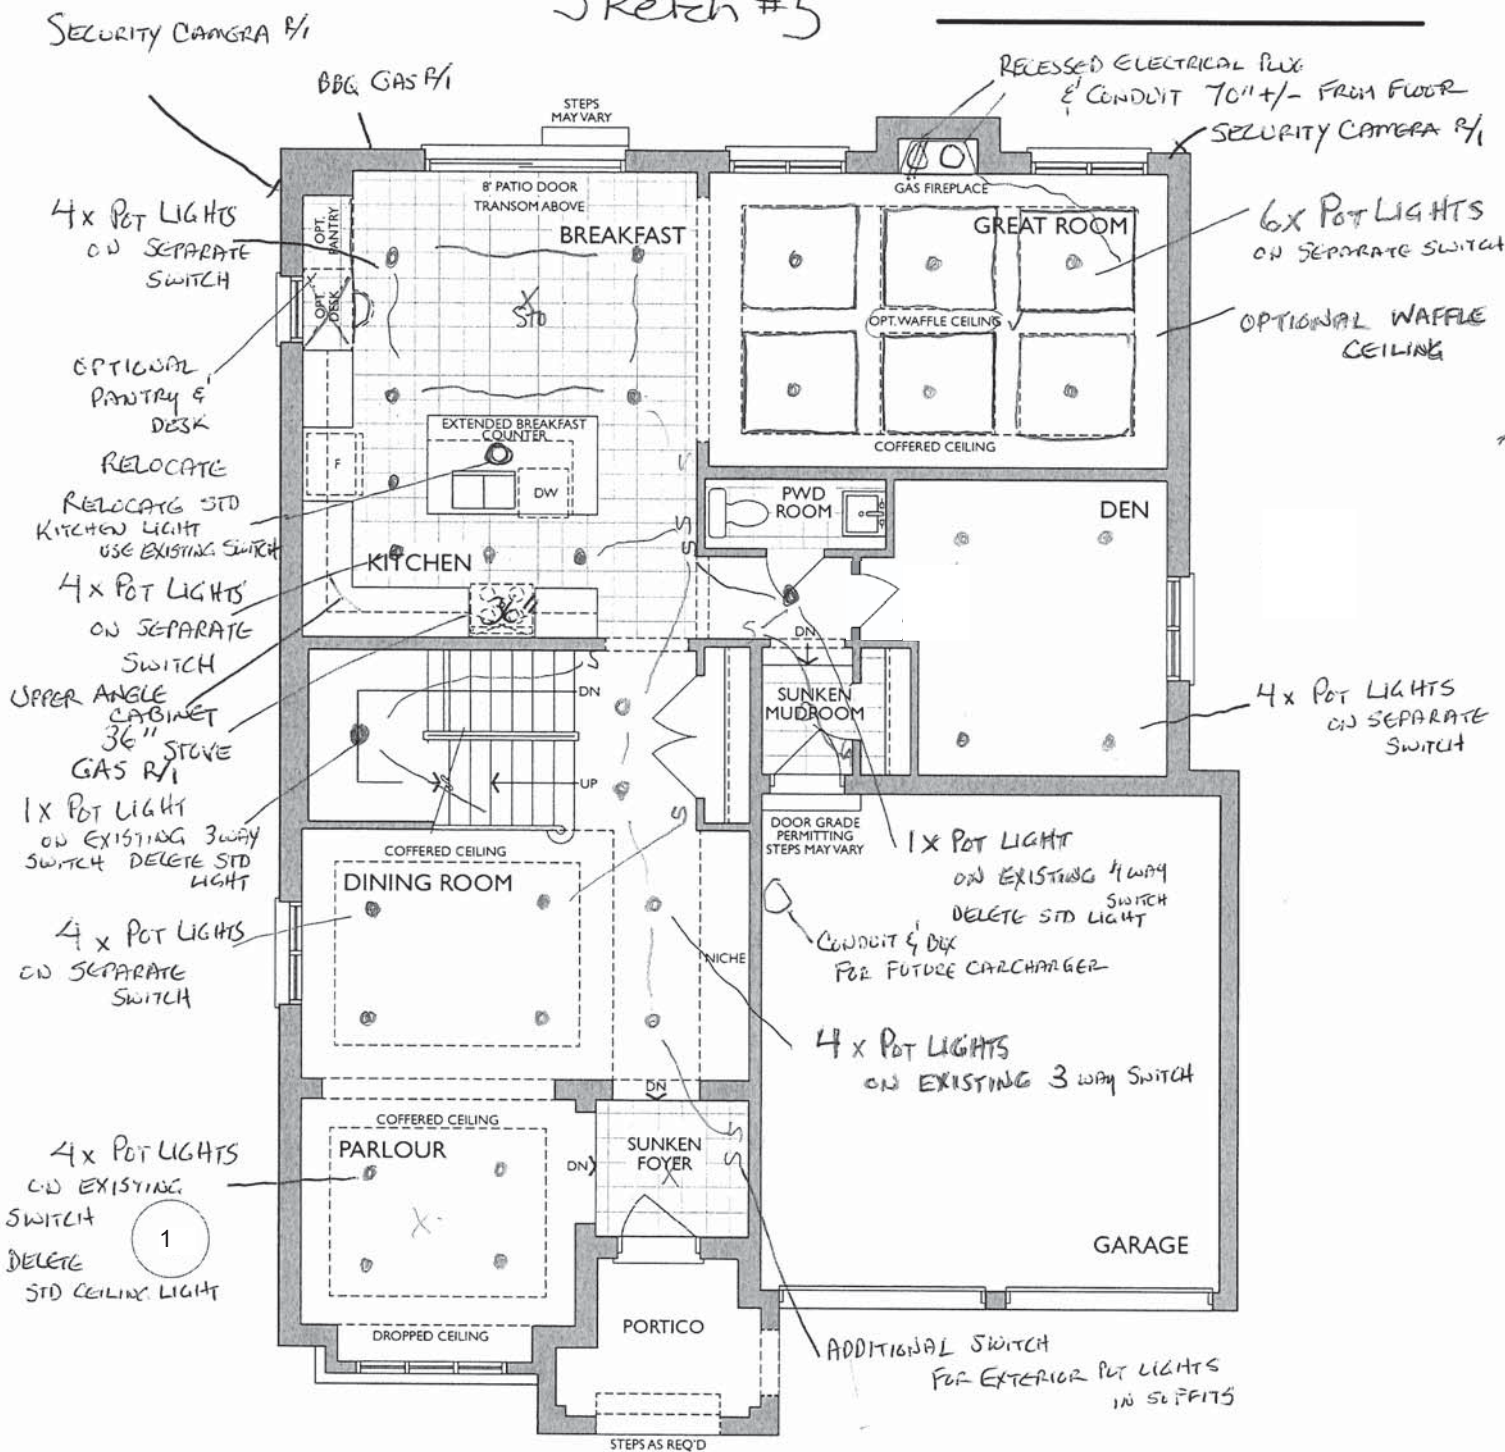 Sketch #5
SECURITY CAMERA R/I
BBQ GAS R/I
STEPS
MAY VARY
RECESSED ELECTRICAL PLUG
& CONDUIT 70" +/- FROM FLOOR
SECURITY CAMERA R/I
4 x POT LIGHTS
ON SEPARATE
SWITCH
OPT.
PANTRY
OPT.
DESK
8' PATIO DOOR
TRANSOM ABOVE
BREAKFAST
STD
GAS FIREPLACE
GREAT ROOM
OPT. WAFFLE CEILING ✓
COFFERED CEILING
6x POT LIGHTS
ON SEPARATE SWITCH
OPTIONAL WAFFLE
CEILING
OPTIONAL
PANTRY &
DESK
RELOCATE
RELOCATE STD
KITCHEN LIGHT
USE EXISTING SWITCH
EXTENDED BREAKFAST
COUNTER
F
DW
S
S
S
KITCHEN
36"
PWD
ROOM
DEN
4 x POT LIGHTS
ON SEPARATE
SWITCH
UPPER ANGLE
CABINET
36" STOVE
GAS R/I
S
DN
S
DN
UP
SUNKEN
MUDROOM
S
4 x POT LIGHTS
ON SEPARATE
SWITCH
1 x POT LIGHT
ON EXISTING 3 WAY
SWITCH DELETE STD
LIGHT
S
COFFERED CEILING
DINING ROOM
DOOR GRADE
PERMITTING
STEPS MAY VARY
1 x POT LIGHT
ON EXISTING 4 WAY
SWITCH
DELETE STD LIGHT
4 x POT LIGHTS
ON SEPARATE
SWITCH
NICHE
CONDUIT & BOX
FOR FUTURE CARCHARGER
4 x POT LIGHTS
ON EXISTING 3 WAY SWITCH
DN
COFFERED CEILING
PARLOUR
DN
SUNKEN
FOYER
S
S
4 x POT LIGHTS
ON EXISTING
SWITCH
1
DELETE
STD CEILING LIGHT
GARAGE
DROPPED CEILING
PORTICO
ADDITIONAL SWITCH
FOR EXTERIOR POT LIGHTS
IN SOFFITS
STEPS AS REQ'D